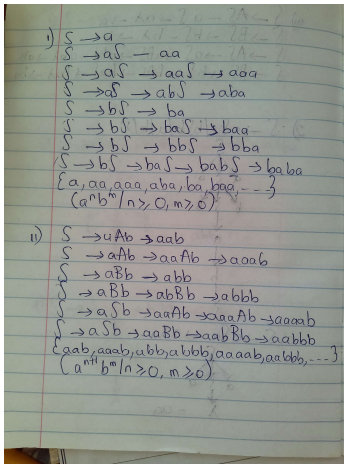 i) S → a
S → aS — aa
S → aS → aaS → aaa
S → aS → abS → aba
S → bS → ba
S → bS → baS → baa
S → bS → bbS → bba
S → bS → baS → babS → baba
{a, aa, aaa, aba, ba, baa, ....}
(aⁿbᵐ/n≥0, m≥0)
ii) S → aAb → aab
S → aAb → aaAb → aaab
S → aBb → abb
S → aBb → abBb → abbb
S → aSb → aaAb → aaaAb → aaaab
S → aSb → aaBb → aabBb → aabbb
{aab, aaab, abb, abbb, aaaab, aabbb, ....}
(aⁿ⁺¹bᵐ/n≥0, m≥0)